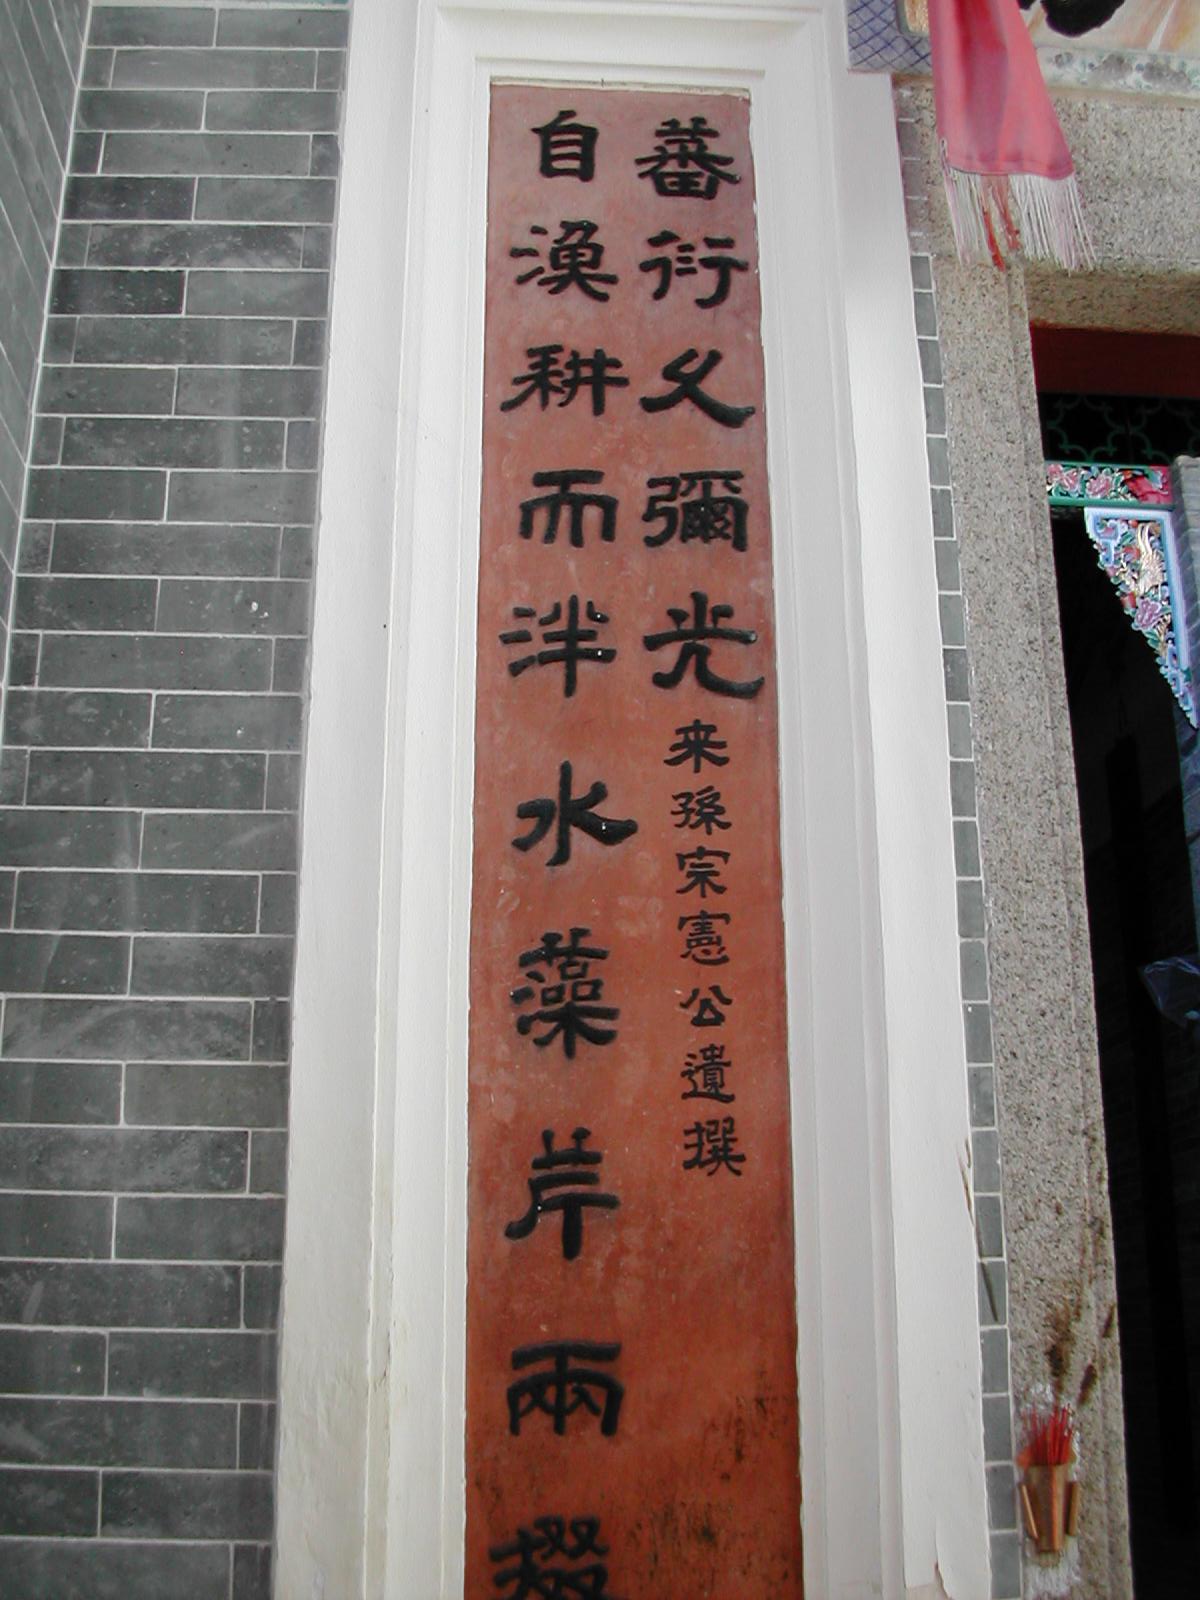 自漁耕而泮水藻芹兩掇
蕃衍久彌光
来孫宗憲公遺撰